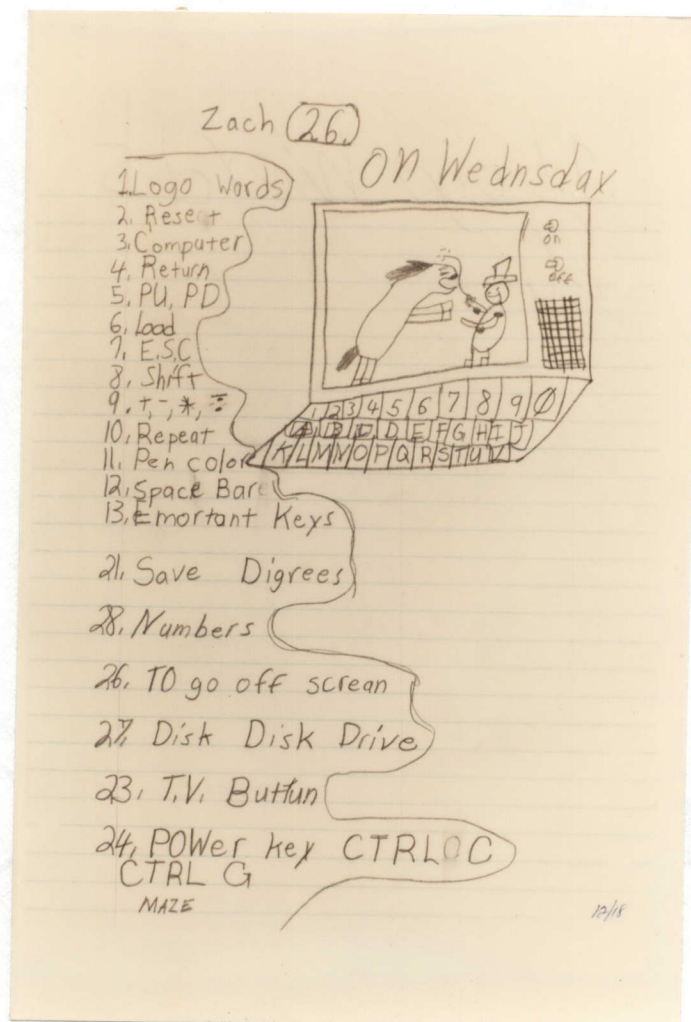 Zach 26.
on Wednsday
1. Logo Words
2. Resert
3. Computer
4. Return
5. PU, PD
6. Load
7. E.S.C
8. Shift
9. +, -, *, ÷
10. Repeat
11. Pen color
12. Space Bar
13. Emortant Keys
21. Save Digrees
28. Numbers
26. TO go off screan
27. Disk Disk Drive
23. T.V. Buttun
24. POWer key CTRL C
CTRL G
MAZE
on
off
1 2 3 4 5 6 7 8 9 Ø
A B C D E F G H I J
K L M M O P Q R S T U V
12/18